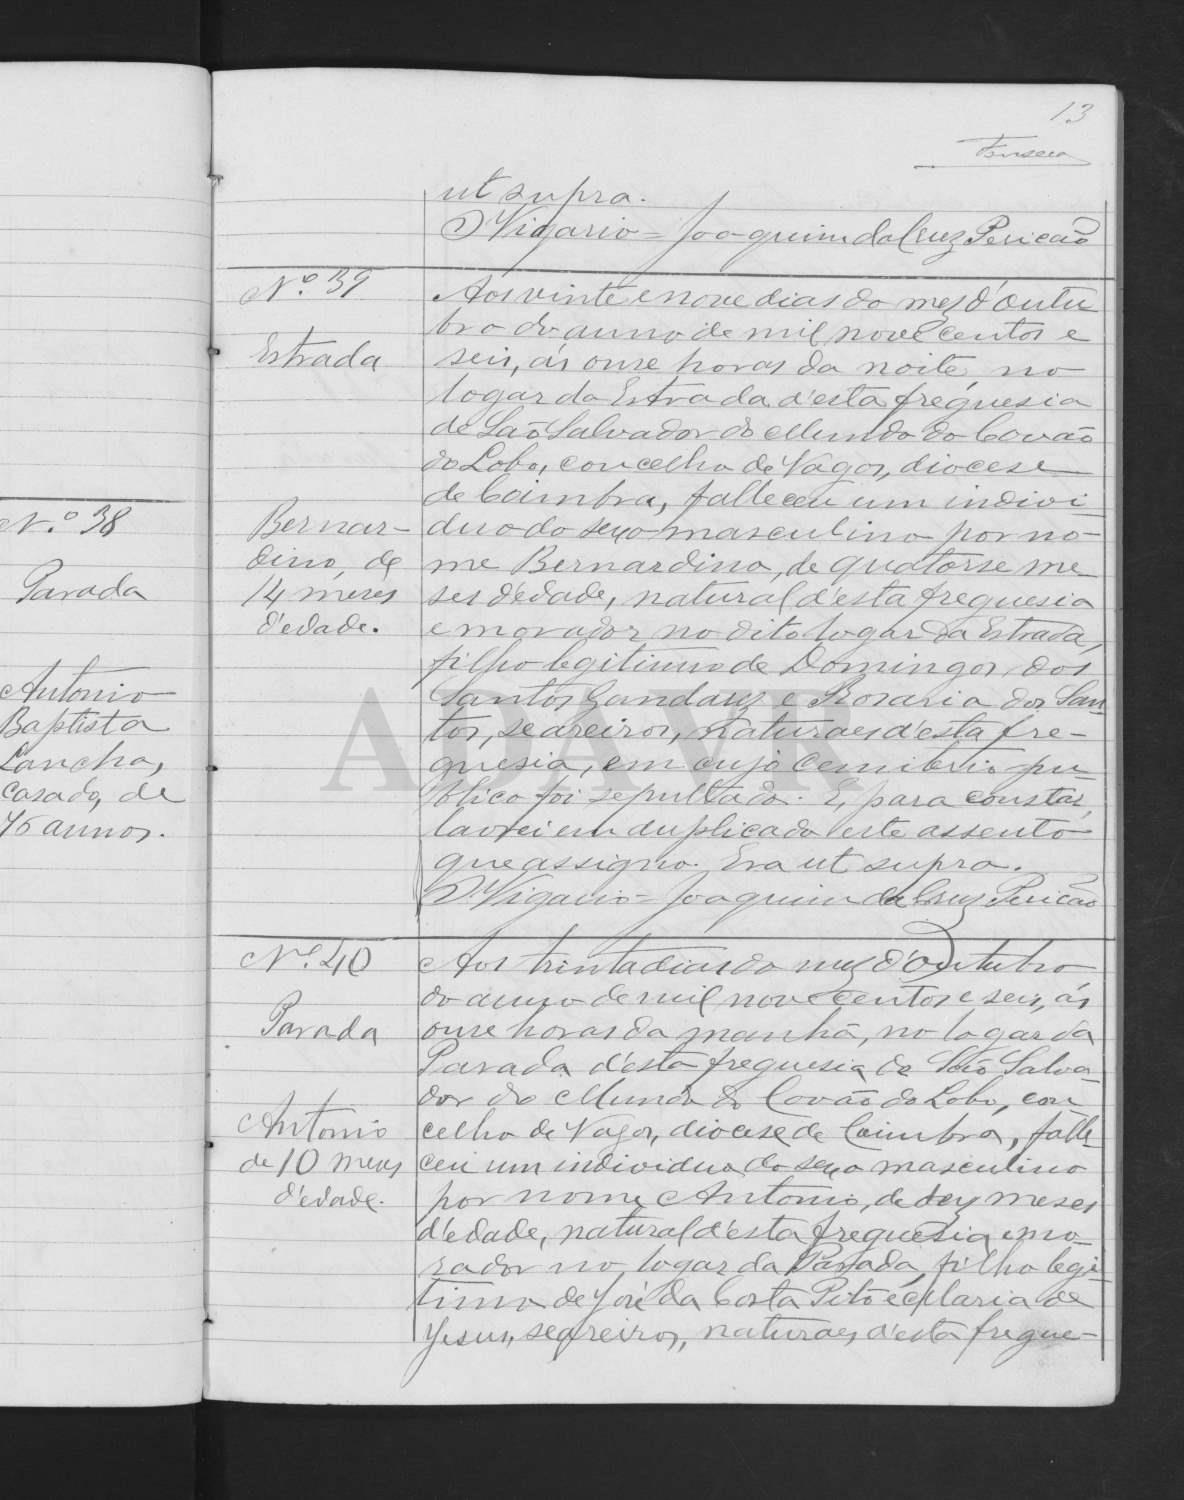 13
Fonseca
ut supra.
O Vigario = Joaquim da Cruz Pericão
N.º 39
Estrada
Bernar-
dino, de
14 meses
d'edade.
Aos vinte e nove dias do mez d'Outu
bro do anno de mil nove centos e
seis, ás onse horas da noite, no
logar da Estrada d'esta freguesia
de São Salvador do Mundo do Covão
do Lobo, concelho de Vagos, diocese
de Coimbra, falleceu um indivi-
duo do sexo masculino por no-
me Bernardino, de quatorse me-
ses d'edade, natural d'esta freguesia
e morador no dito logar da Estrada,
filho legitimo de Domingos dos
Santos Gandaez e Rosaria dos San-
tos, seareiros, naturaes d'esta fre-
guesia, em cujo cemiterio pu-
blico foi sepultado. E, para constar,
lavrei em duplicado este assento
que assigno. Era ut supra.
O Vigario = Joaquim da Cruz Pericão
N.º 40
Parada
Antonio
de 10 meses
d'edade.
Aos trinta dias do mez d'Outubro
do anno de mil nove centos e seis, ás
onse horas da manhã, no logar da
Parada d'esta freguesia de São Salva-
dor do Mundo do Covão do Lobo, con
celho de Vagos, diocese de Coimbra, falle-
ceu um individuo do sexo masculino
por nome Antonio, de dez meses
d'edade, natural d'esta freguesia e mo-
rador no logar da Parada, filho legi-
timo de José da Costa Pito e Maria de
Jesus, seareiros, naturaes d'esta fregue-
N.º 38
Parada
Antonio
Baptista
Lancha,
casado, de
76 annos.
ADAVR